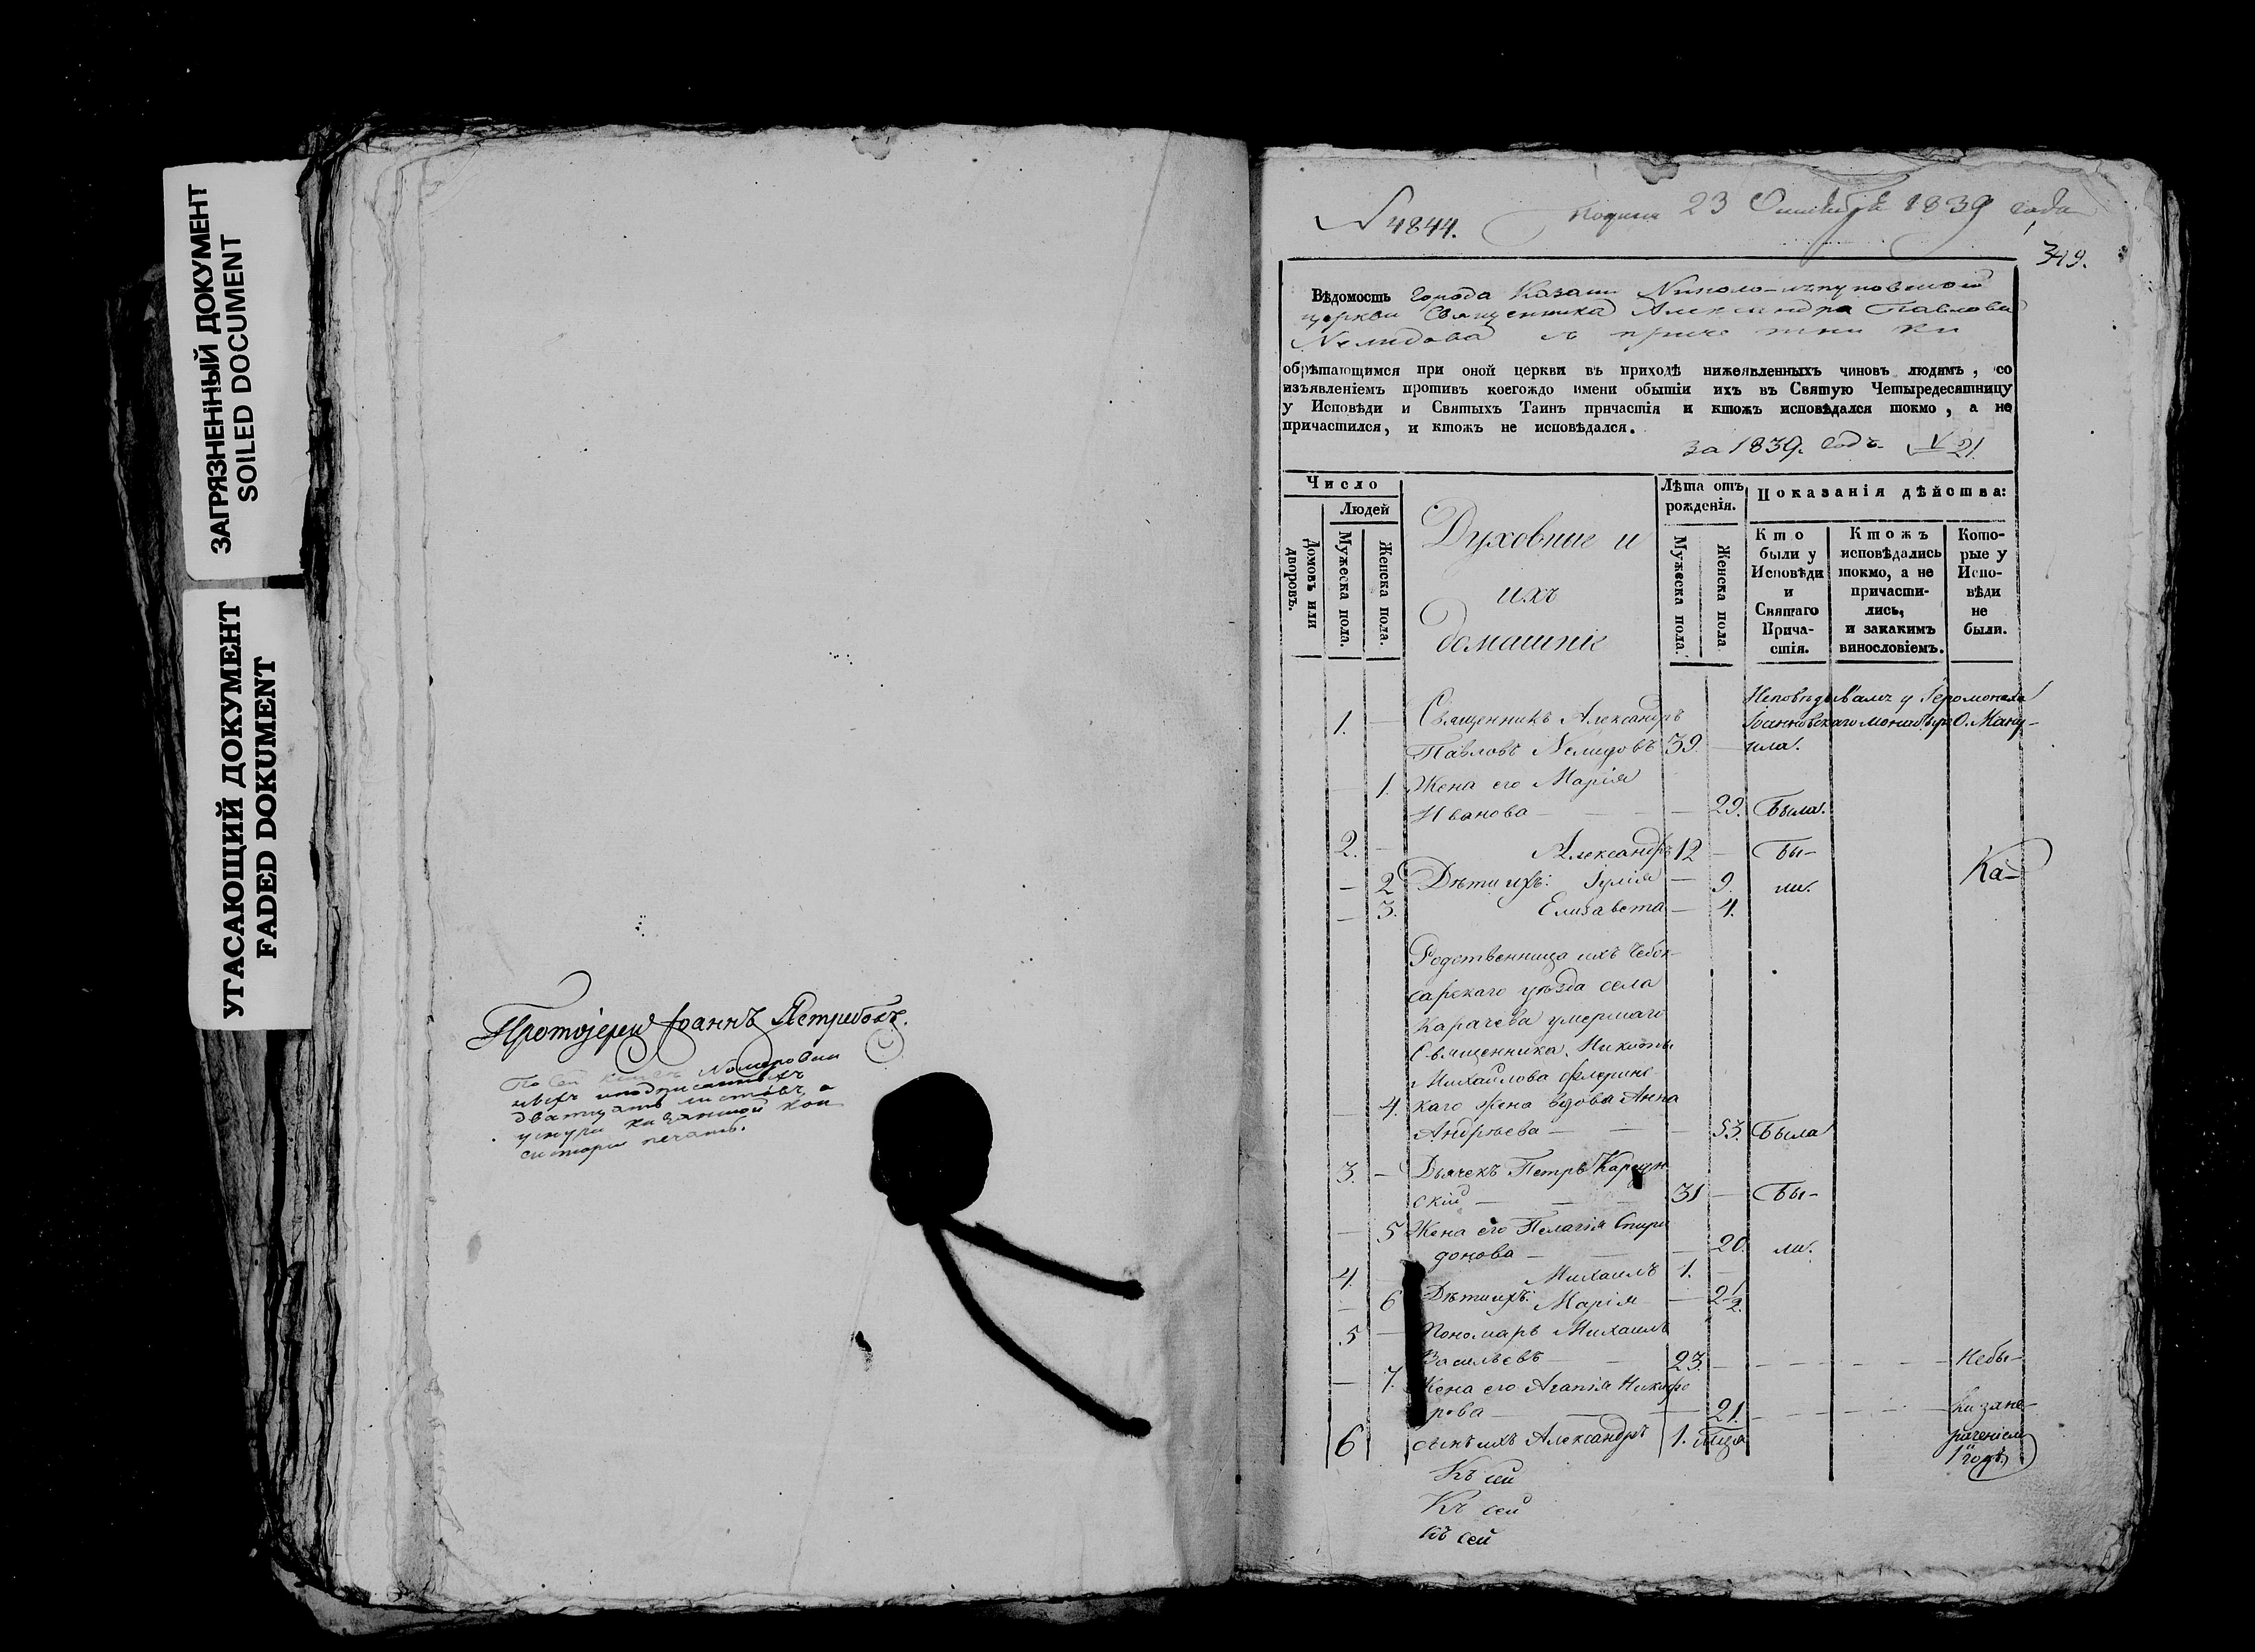 ЗАГРЯЗНЕННЫЙ ДОКУМЕНТ
SOILED DOCUMENT
УГАСАЮЩИЙ ДОКУМЕНТ
FADED DOKUMENT
Протоіерей Іоаннъ Ястребовъ.
По сей книгѣ
двадцать листовъ, а
печать.
N 4844. 23 1839 года
349.
Вѣдомость города Казани Николо-
церкви Священника Александра Павлова
Нелидова съ причетники
обрѣтающимся при оной церкви въ приходѣ нижеявленныхъ чиновъ людямъ, со
изъявленіемъ противъ коегождо имени обытіи ихъ въ Святую Четыредесятницу
у Исповѣди и Святыхъ Таинъ причастія и ктожъ исповѣдался токмо, а не
причастился, и ктожъ не исповѣдался.
за 1839. годъ. 21
Число
Людей
Домовъ или дворовъ.
Мужеска пола.
Женска пола.
Духовные и
ихъ
домашніе
Лѣта отъ рожденія.
Мужеска пола.
Женска пола
Показанія дѣйства:
Кто были у Исповѣди и Святаго Прича-стія.
Ктожъ исповѣдались токмо, а не причасти-лись, и закакимъ винословіемъ.
Кото-рые у Испо-вѣди не были.
1. — Священникъ Александръ Исповѣдывалъ у Іеромонаха
Павловъ Нелидовъ 39. — Іоанновскаго О. Ману-
ила.
1. Жена его Марія
Иванова — — 29. Была.
2. — Александръ 12 — Бы-
— 2 Дѣти ихъ: Іулія — 9. ли. Ка-
— 3. Елизавета — 4.
Родственница ихъ Чебок-
сарскаго уѣзда села
Карачева умершаго
Священника Никиты
Михайлова
— 4. каго жена вдова Анна
Андреева — — — 53. Была
3. — Дьячекъ Петръ
скій — 31 — Бы-
— 5 Жена его Пелагія Спири
донова — — 20. ли.
4. Михаилъ 1. —
— 6 Дѣти ихъ: Марія — 2 1/2.
5 — Пономарь Михаилъ
Васильевъ — 23. — Небы-
— 7. Жена его Агапія Никифо
рова — — 21. — ли за не-
6 сынъ ихъ Александръ 1.
Къ сей
Къ сей
къ сей